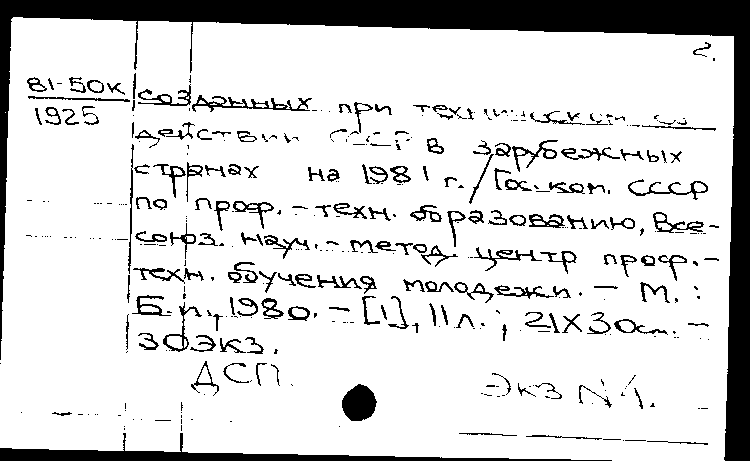 2.
81-50к
1925
созданных при техническом со
действии СССР в зарубежных
странах на 1981 г. / Гос. ком. СССР
по проф.-техн. образованию, Все-
союз. науч.-метод. центр проф.-
техн. обучения молодежи. - М. :
Б.и., 1980. - [1], 11 л. ; 21X30см. -
30экз.
ДСП.
Экз N 1.